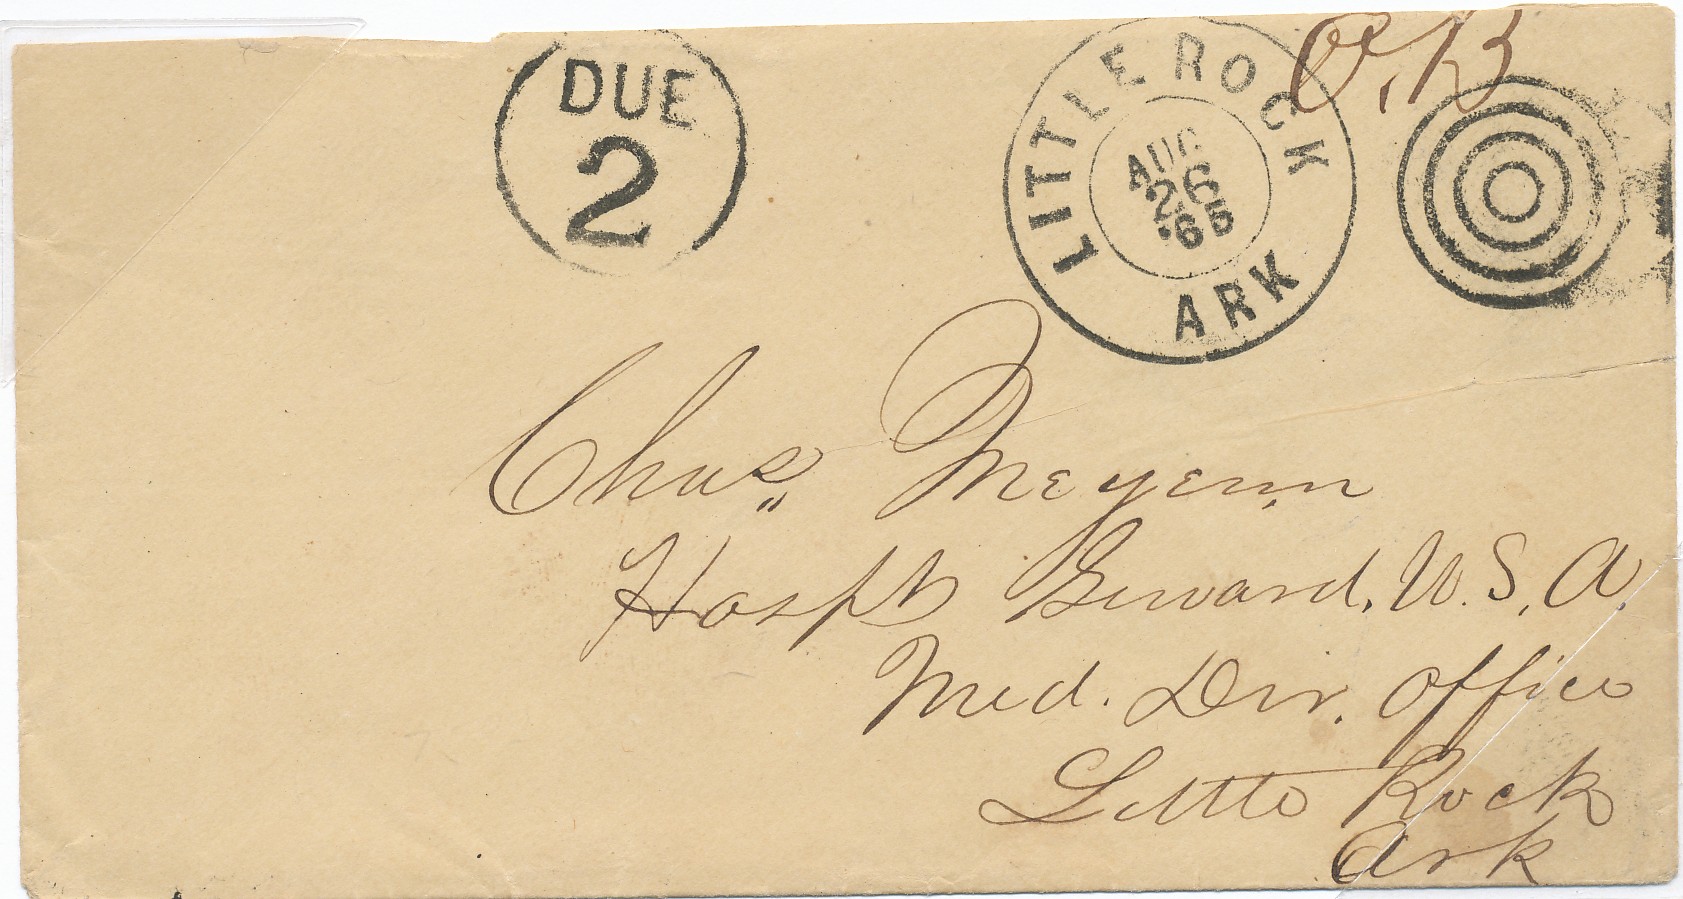 DUE
2
LITTLE ROCK
ARK
AUG
26
'65
O.B
Chas. Meyenn
Hospt. Steward, U.S.A.
Med. Dir. Office
Little Rock
Ark